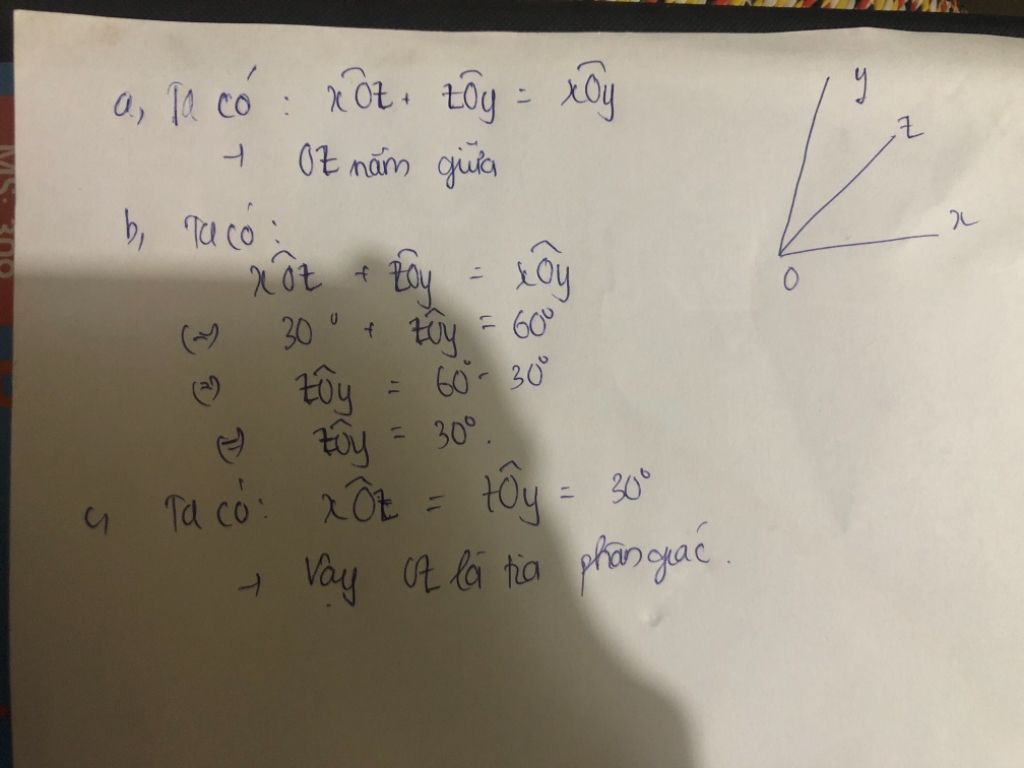 a, Ta có : xÔz + zÔy = xÔy
→ OZ nằm giữa
b, Ta có :
xÔz + zÔy = xÔy
(=) 30° + zÔy = 60°
(=) zÔy = 60° - 30°
(=) zÔy = 30°.
c, Ta có : xÔz = zÔy = 30°
→ Vậy OZ là tia phân giác.
y
z
x
O
MS: 309